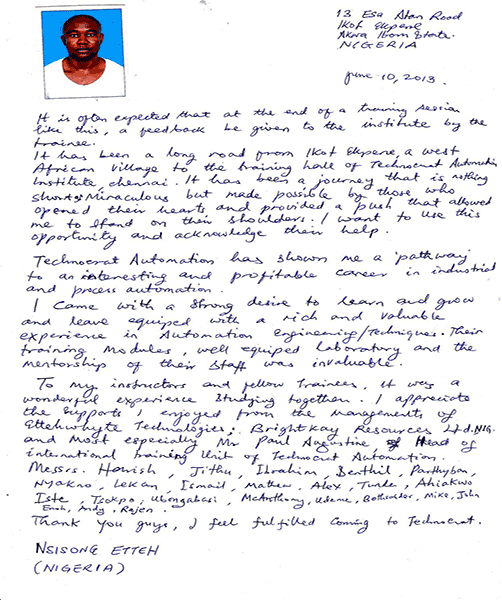 13 Esa Atan Road
Ikot Ekpene
Akwa Ibom State.
NIGERIA
June 10, 2013.
It is often expected that at the end of a training session
like this, a feedback be given to the institute by the
trainee.
It has been a long road from Ikot Ekpene, a west
African village to the training hall of Technocrat Automation
Institute, chennai. It has been a journey that is nothing
short of Miraculous but made possible by those who
opened their hearts and provided a push that allowed
me to stand on their shoulders. I want to use this
opportunity and acknowledge their help.
Technocrat Automation has shown me a 'pathway'
to an interesting and profitable career in industrial
and process automation.
I came with a strong desire to learn and grow
and leave equiped with a rich and valuable
experience in Automation Engineering/Techniques. Their
training modules, well equiped laboratory and the
mentorship of their staff was invaluable.
To my instructors and fellow trainees, it was a
wonderful experience studying together. I appreciate
the supports I enjoyed from the managements of
Ettehwhyte Technologies; BrightKay Resources Ltd. NIG.
and most especially Mr Paul Augustine Head of
international training Unit of Technocrat Automation.
Messrs. Harish, Jithu, Ibrahim, Berthil, Parthyban,
Nyakno, Lekan, Ismail, Mathew, Alex, Tunde, Ahiakwo
Iste, Tsokpo, Ubongabasi, McAnthony, Udeme, Mike, John
Enoh, Andy, Rajen.
Thank you guys, I feel fulfilled coming to Technocrat.
NSISONG ETTEH
(NIGERIA)